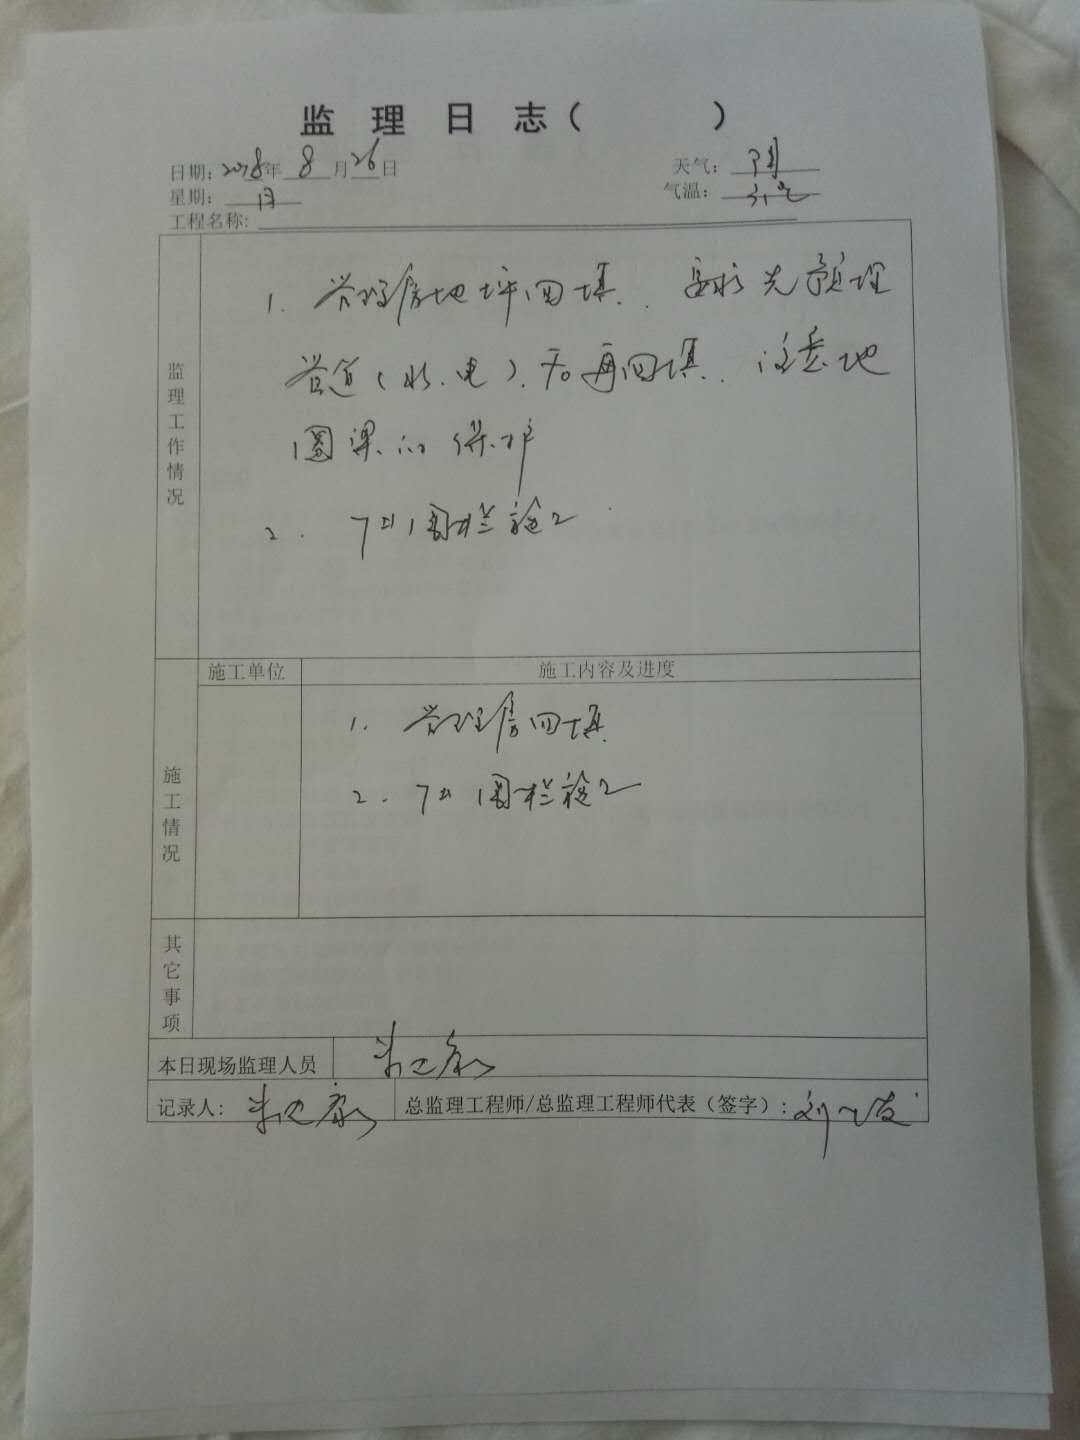 监 理 日 志（ ）
日期：2018年 8 月 26 日 天气：阴
星期：日 气温：31℃
工程名称：
监理工作情况
1. 管理房地坪回填. 要求先预埋
管道（水.电）.后再回填. 注意地
圈梁的保护
2. 围栏施工
施工单位 施工内容及进度
施工情况
1. 管理房回填
2. 围栏施工
其它事项
本日现场监理人员
记录人： 总监理工程师/总监理工程师代表（签字）：刘